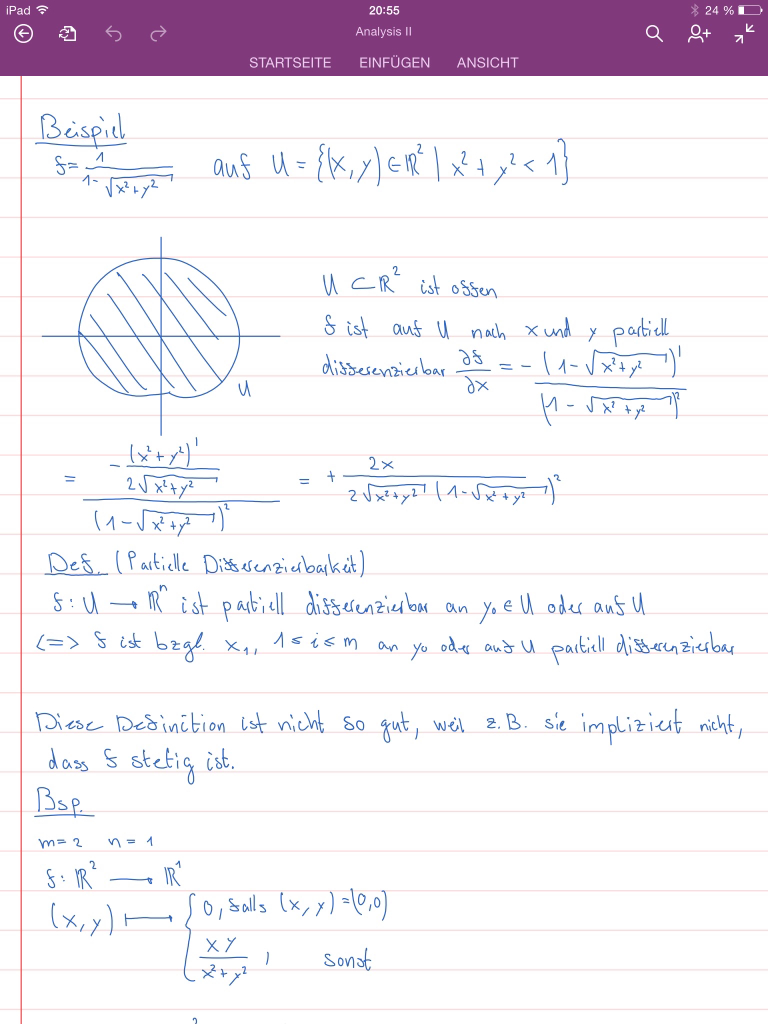 iPad 20:55 24 %
Analysis II
STARTSEITE EINFÜGEN ANSICHT
Beispiel
f = 1 / (1 - √(x² + y²)) auf U = {(x, y) ∈ ℝ² | x² + y² < 1}
U ⊂ ℝ² ist offen
f ist auf U nach x und y partiell
differenzierbar ∂f/∂x = - (1 - √(x² + y²))' / (1 - √(x² + y²))²
U
= (- (x² + y²)' / (2√(x² + y²))) / (1 - √(x² + y²))² = + 2x / (2√(x² + y²) (1 - √(x² + y²))²)
Def. (Partielle Differenzierbarkeit)
f: U → ℝⁿ ist partiell differenzierbar an y₀ ∈ U oder auf U
<=> f ist bzgl. x₁, 1 ≤ i ≤ m an y₀ oder auf U partiell differenzierbar
Diese Definition ist nicht so gut, weil z.B. sie impliziert nicht,
dass f stetig ist.
Bsp.
m = 2 n = 1
f: ℝ² → ℝ¹
(x, y) ↦ { 0, falls (x, y) = (0,0)
xy / (x² + y²), sonst
2